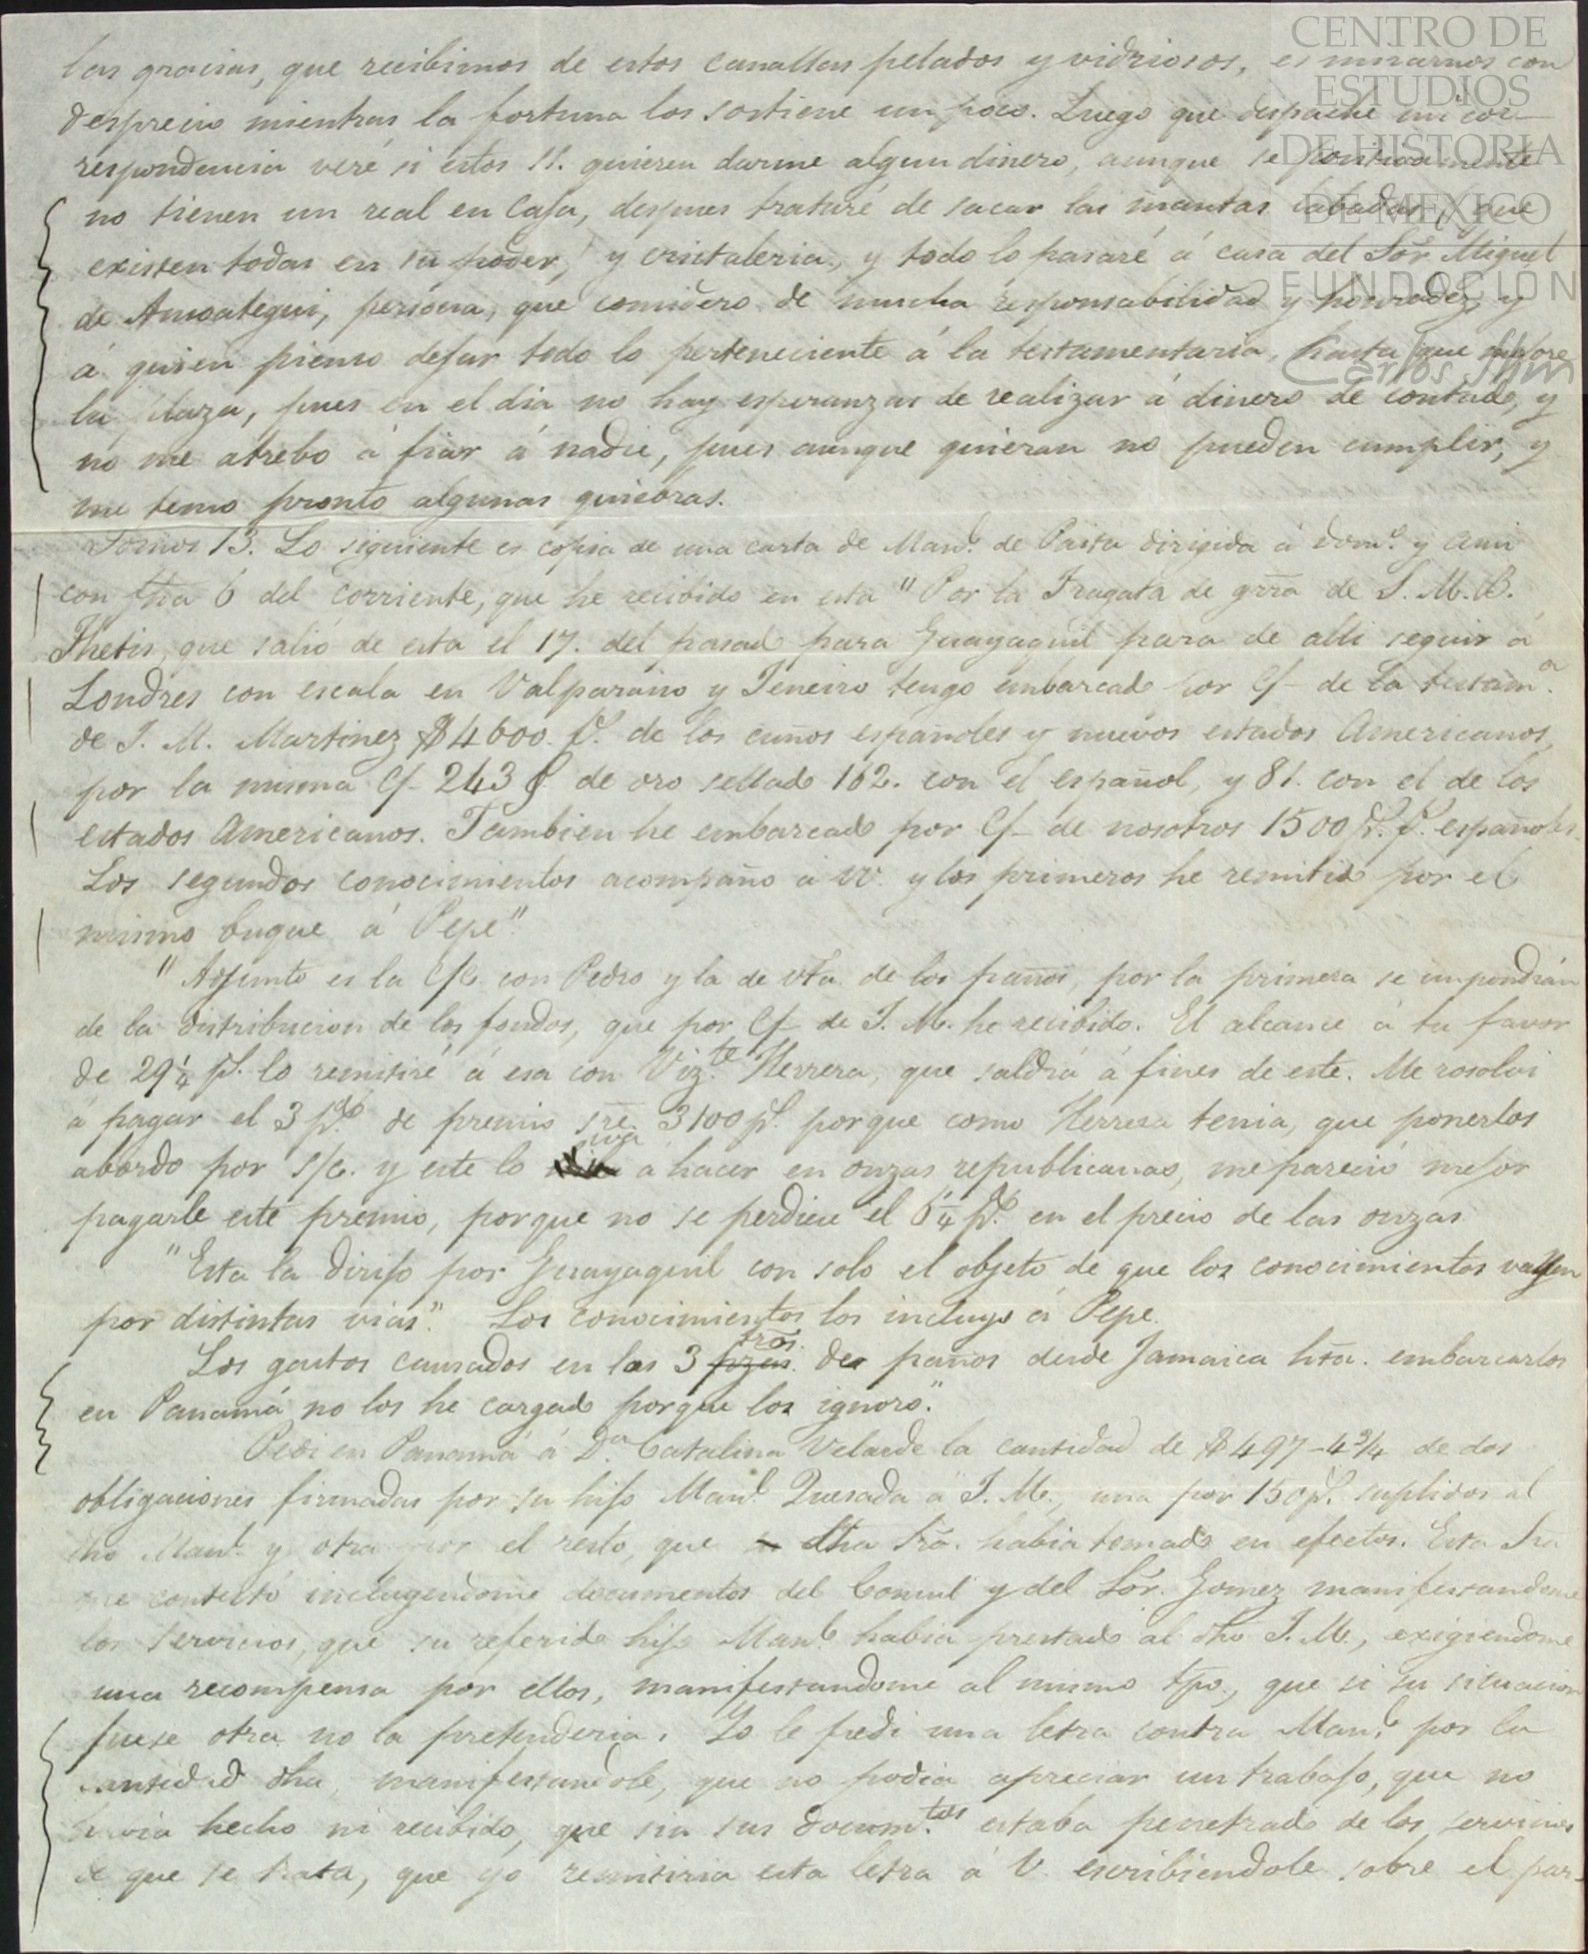 CENTRO DE
ESTUDIOS
DE HISTORIA
DE MEXICO
FUNDACIÓN
Carlos Slim
las gracias, que recibimos de estos canallas pelados y vidriosos, es mirarnos con
desprecio mientras la fortuna los sostiene un poco. Luego que despache mi cor-
respondencia veré si estos SS. quieren darme algun dinero, aunque se positivamente
no tienen un real en Casa, despues trataré de sacar las mantas labadas, que
existen todas en su poder, y cristaleria, y todo lo pasaré á casa del Sõr Miguel
de Amoategui, persona, que considero de mucha responsabilidad y honradez, y
á quien pienso dejar todo lo perteneciente á la testamentaria, hasta que mejore
la Plaza, pues en el dia no hay esperanzas de realizar á dinero de contado, y
no me atrebo á fiar á nadie, pues aunque quieran no pueden cumplir, y
me temo pronto algunas quiebras.
Somos 13. Lo siguiente es copia de una carta de Man.l de Paita dirigida á Dom.o y Ami
con fha 6 del corriente, que he recibido en esta "Por la Fragata de grra de S. M. B.
Thetis, que salió de esta el 17. del pasad para Guayaquil para de alli seguir á
Londres con escala en Valparaiso y Jeneiro tengo embarcado por C/- de la testam.a
de J. M. Martinez $4600. f.s de los cuños españoles y nuevos estados Americanos,
por la misma C/- 243 de oro sellado 162. con el español, y 81. con el de los
estados Americanos. Tambien he embarcado por C/- de nosotros 1500 p.s f.s españoles.
Los segundos conocimientos acompaño á VV. y los primeros he remitido por el
mismo buque á Pepe"
"Adjunto es la C/C. con Pedro y la de vta. de los paños, por la primera se impondrán
de la distribucion de los fondos, que por C/- de J. M. he recibido. El alcance á tu favor
de 29¼ p.s lo remitiré á esa con Viz.te Herrera, que saldrá á fines de este. Me rosolvi
á pagar el 3 p.% de premio sre. 3100 p.s porque como Herrera tenia, que ponerlos
abordo por S/C. y este lo iva á hacer en onzas republicanas, me pareció mejor
pagarle este premio, porque no se perdiese el 6¼ p.% en el precio de las onzas.
"Esta la dirijo por Guayaquil con solo el objeto de que los conocimientos vayan
por distintas vias". Los conocimientos los incluyo á Pepe.
Los gastos causados en los 3 pzas. tros. de paños desde Jamaica hta. embarcarlos
en Panamá no los he cargado porque los ignoro".
Pedi en Panamá á D.a Catalina Velarde la cantidad de $497-4¾ de dos
obligaciones firmadas por su hijo Man.l Quesada á J. M., una por 150 p.s suplidos al
dho Man.l y otra por el resto, que dha Sra. habia tomado en efectos. Esta Sra
me contestó incluyendome documentos del Consul y del Sõr. Gomez manifestandome
los servicios, que su referido hijo Man.l habia prestado al dho J. M., exigiendome
una recompensa por ellos, manifestandome al mismo tpo., que si su situacion
fuese otra no la pretenderia. Yo le pedi una letra contra Man.l por la
cantidad dha, manifestandole, que no podia apreciar un trabajo, que no
havia hecho ni recibido, que sin sus docum.tos estaba penetrado de los servicios
de que se trata, que yo remitiria esta letra á V. escribiendole sobre el par-